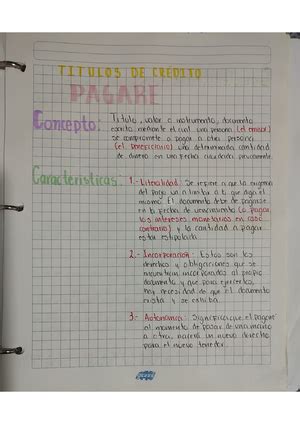 TITULOS DE CREDITO
PAGARE
Concepto: Titulo, valor o instrumento, documento
escrito mediante el cual una persona (el emisor)
se compromete a pagar a otra persona
(el beneficiario) una determinada cantidad
de dinero en una fecha acordada previamente.
Caracteristicas: 1.- Literalidad: Se refiere a que la exigencia
del pago va a limitar a lo que diga el
mismo. El documento debe de pagarse
en la fecha de vencimiento (o pagar
los intereses monetarios en caso
contrario) y la cantidad a pagar
esta estipulada.
2.- Incorporación: Estos son los
derechos y obligaciones que se
encuentran incorporados al propio
documento y que para ejercerlos,
hay necesidad de que el documento
exista y se exhiba.
3.- Autonomia: Significa que el pagare
al momento de pasar de una mano
a otra, nacerá un nuevo derecho
para el nuevo tenedor.